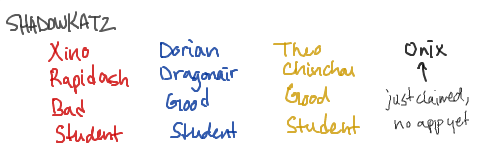 SHADOWKATZ
Xino
Rapidash
Bad
Student
Dorian
Dragonair
Good
Student
Theo
Chinchou
Good
Student
Onix
just claimed,
no app yet